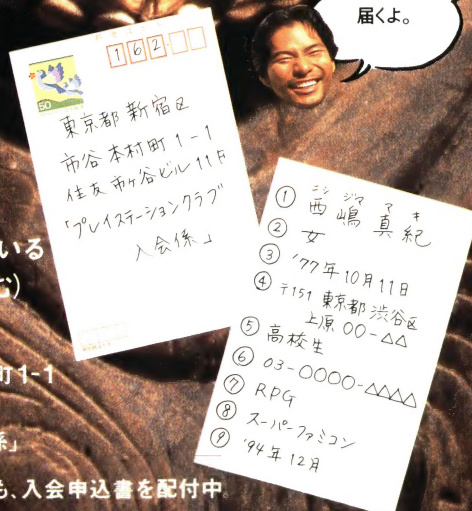 届くよ。
162
50
東京都新宿区
市谷本村町1-1
住友市ヶ谷ビル11F
「プレイステーションクラブ
入会係」
ニシ ジマ マ キ
① 西嶋真紀
② 女
③ '77年10月11日
④ 〒151 東京都渋谷区
上原00-△△
⑤ 高校生
⑥ 03-0000-△△△△
⑦ RPG
⑧ スーパーファミコン
⑨ '94年12月
いる
む)
町1-1
係」
も、入会申込書を配付中